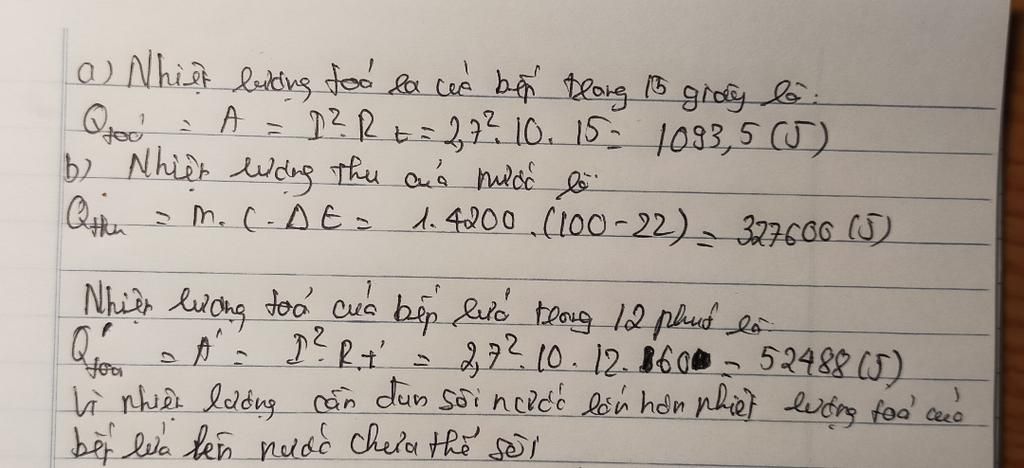 a) Nhiệt lượng toả ra của bếp trong 15 giây là:
Qtoả = A = I².R t = 2,7².10.15 = 1093,5 (J)
b) Nhiệt lượng thu của nước là:
Qthu = m.C.Δt = 1.4200.(100-22) = 327600 (J)
Nhiệt lượng toả của bếp lửa trong 12 phút là
Q'toả = A' = I².R.t' = 2,7².10.12.60 = 52488 (J)
Vì nhiệt lượng cần đun sôi nước lớn hơn nhiệt lượng toả của
bếp lửa nên nước chưa thể sôi